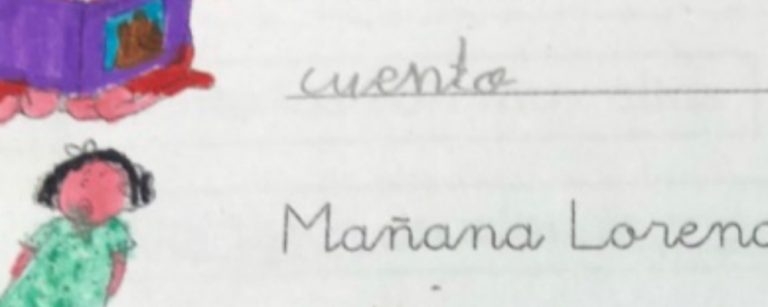 cuento
Mañana Lorena